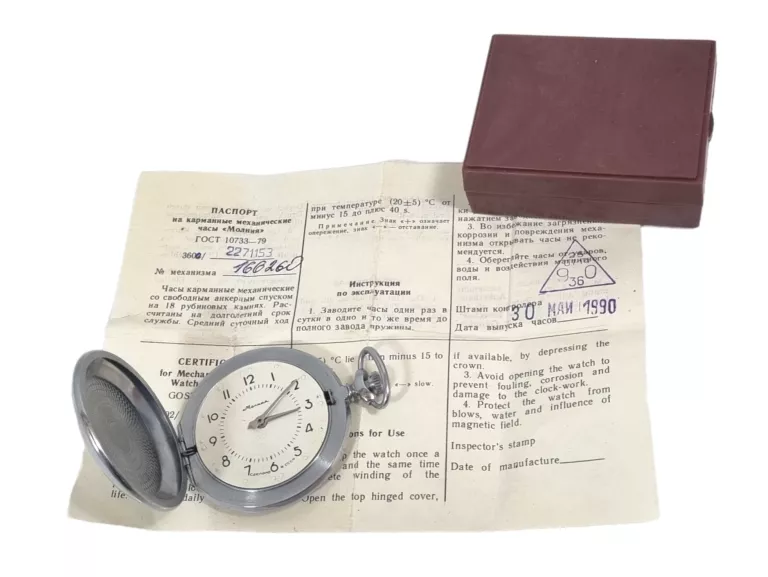 ПАСПОРТ
на карманные механические
часы «Молния»
ГОСТ 10733—79
3602/ 2271153
№ механизма 166260
Часы карманные механические
со свободным анкерным спуском
на 18 рубиновых камнях. Рас-
считаны на долголетний срок
службы. Средний суточный ход
при температуре (20±5) °С от
минус 15 до плюс 40 s.
Примечание. Знак «+» означает
опережение, знак «—» — отставание.
Инструкция
по эксплуатации
1. Заводите часы один раз в
сутки в одно и то же время до
полного завода пружины.
ки
нажатием за
3. Во избежание загрязнения,
коррозии и повреждения меха-
низма открывать часы не реко-
мендуется.
4. Оберегайте часы от ударов,
воды и воздействия магнитного
поля.
Штамп контролера
30 МАЙ 1990
Дата выпуска часов
36
CERTIFIC
for Mecha
Watch
GOS
life.
daily
°C lie from minus 15 to
slow.
ns for Use
the watch once a
and the same time
ete winding of the
Open the top hinged cover,
if available, by depressing the
crown.
3. Avoid opening the watch to
prevent fouling, corrosion and
damage to the clock-work.
4. Protect the watch from
blows, water and influence of
magnetic field.
Inspector's stamp
Date of manufacture
12 1 2 3 4 5 6 7 8 9 10 11
Молния